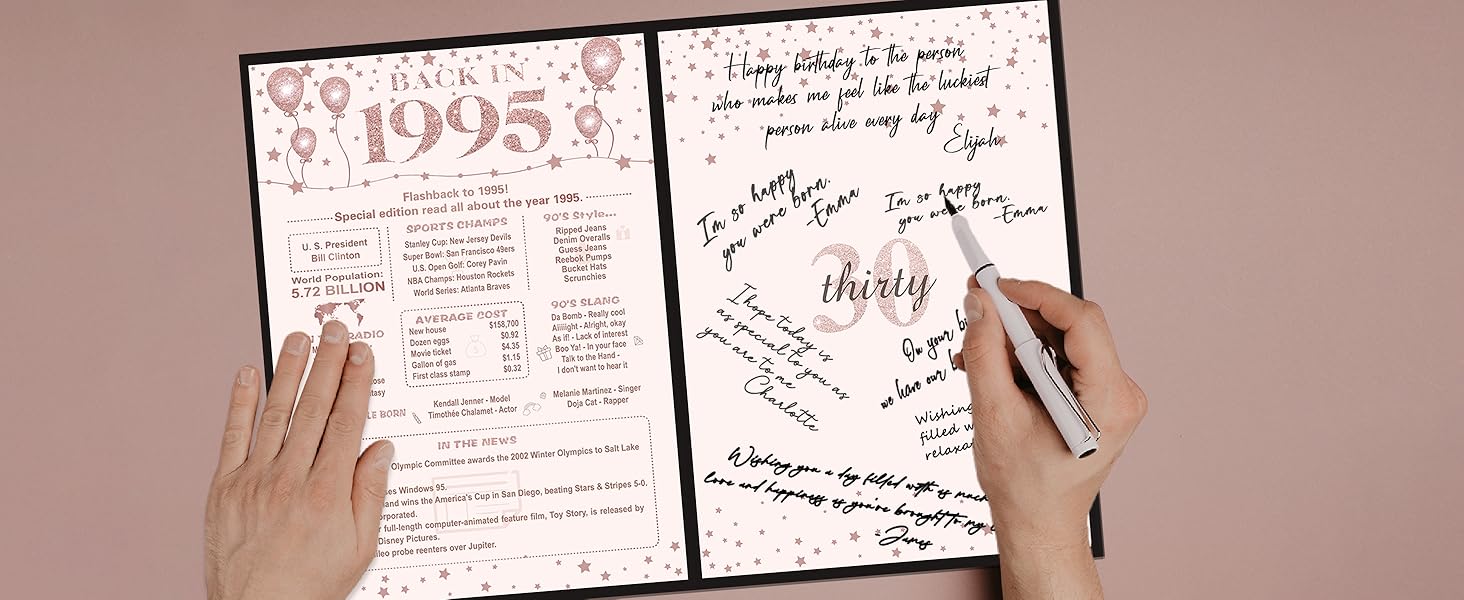 BACK IN
1995
Flashback to 1995!
Special edition read all about the year 1995.
U. S. President
Bill Clinton
World Population:
5.72 BILLION
RADIO
SPORTS CHAMPS
Stanley Cup: New Jersey Devils
Super Bowl: San Francisco 49ers
U.S. Open Golf: Corey Pavin
NBA Champs: Houston Rockets
World Series: Atlanta Braves
90'S Style...
Ripped Jeans
Denim Overalls
Guess Jeans
Reebok Pumps
Bucket Hats
Scrunchies
AVERAGE COST
New house $158,700
Dozen eggs $0.92
Movie ticket $4.35
Gallon of gas $1.15
First class stamp $0.32
90'S SLANG
Da Bomb - Really cool
Aiiiight - Alright, okay
As if! - Lack of interest
Boo Ya! - In your face
Talk to the Hand -
I don't want to hear it
BORN
Kendall Jenner - Model
Timothée Chalamet - Actor
Melanie Martinez - Singer
Doja Cat - Rapper
IN THE NEWS
Olympic Committee awards the 2002 Winter Olympics to Salt Lake
Windows 95.
wins the America's Cup in San Diego, beating Stars & Stripes 5-0.
full-length computer-animated feature film, Toy Story, is released by
Disney Pictures.
probe reenters over Jupiter.
Happy birthday to the person
who makes me feel like the luckiest
person alive every day
Elijah
Im so happy
you were born.
-Emma
Im so happy
you were born.
-Emma
30
thirty
I hope today is
as special to you as
you are to me
Charlotte
On your
we have our
Wishing
filled
Wishing you a day filled with is much
love and happiness is you've brought to my
-James